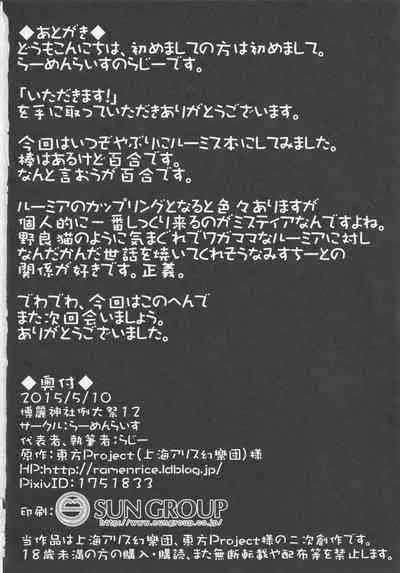 ◆あとがき◆
どうもこんにちは、初めましての方は初めまして。
らーめんらいすのらじーです。
「いただきます!」
を手に取っていただきありがとうございます。
今回はいつぞやぶりにルーミス本にしてみました。
棒はあるけど百合です。
なんと言おうが百合です。
ルーミアのカップリングとなると色々ありますが
個人的に一番しっくり来るのがミスティアなんですよね。
野良猫のように気まぐれでワガママなルーミアに対し
なんだかんだ世話を焼いてくれそうなみすちーとの
関係が好きです。正義。
でわでわ、今回はこのへんで
また次回会いましょう。
ありがとうございました。
◆奥付◆
2015/5/10
博麗神社例大祭12
サークル:らーめんらいす
代表者、執筆者:らじー
原作:東方Project(上海アリス幻樂団)様
HP:http://ramenrice.ldblog.jp/
PixivID:1751833
印刷: SUN GROUP
当作品は上海アリス幻樂団、東方Project様の二次創作です。
18歳未満の方の購入・購読、また無断転載や配布等を禁止します。